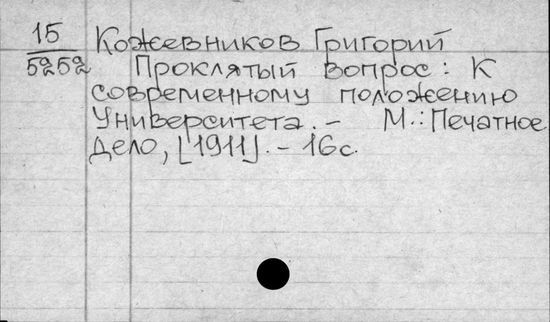 15 Кожевников Григорий
5252 Проклятый вопрос: К
современному положению
Университета. – М.: Печатное
дело, [1911]. – 16 с.